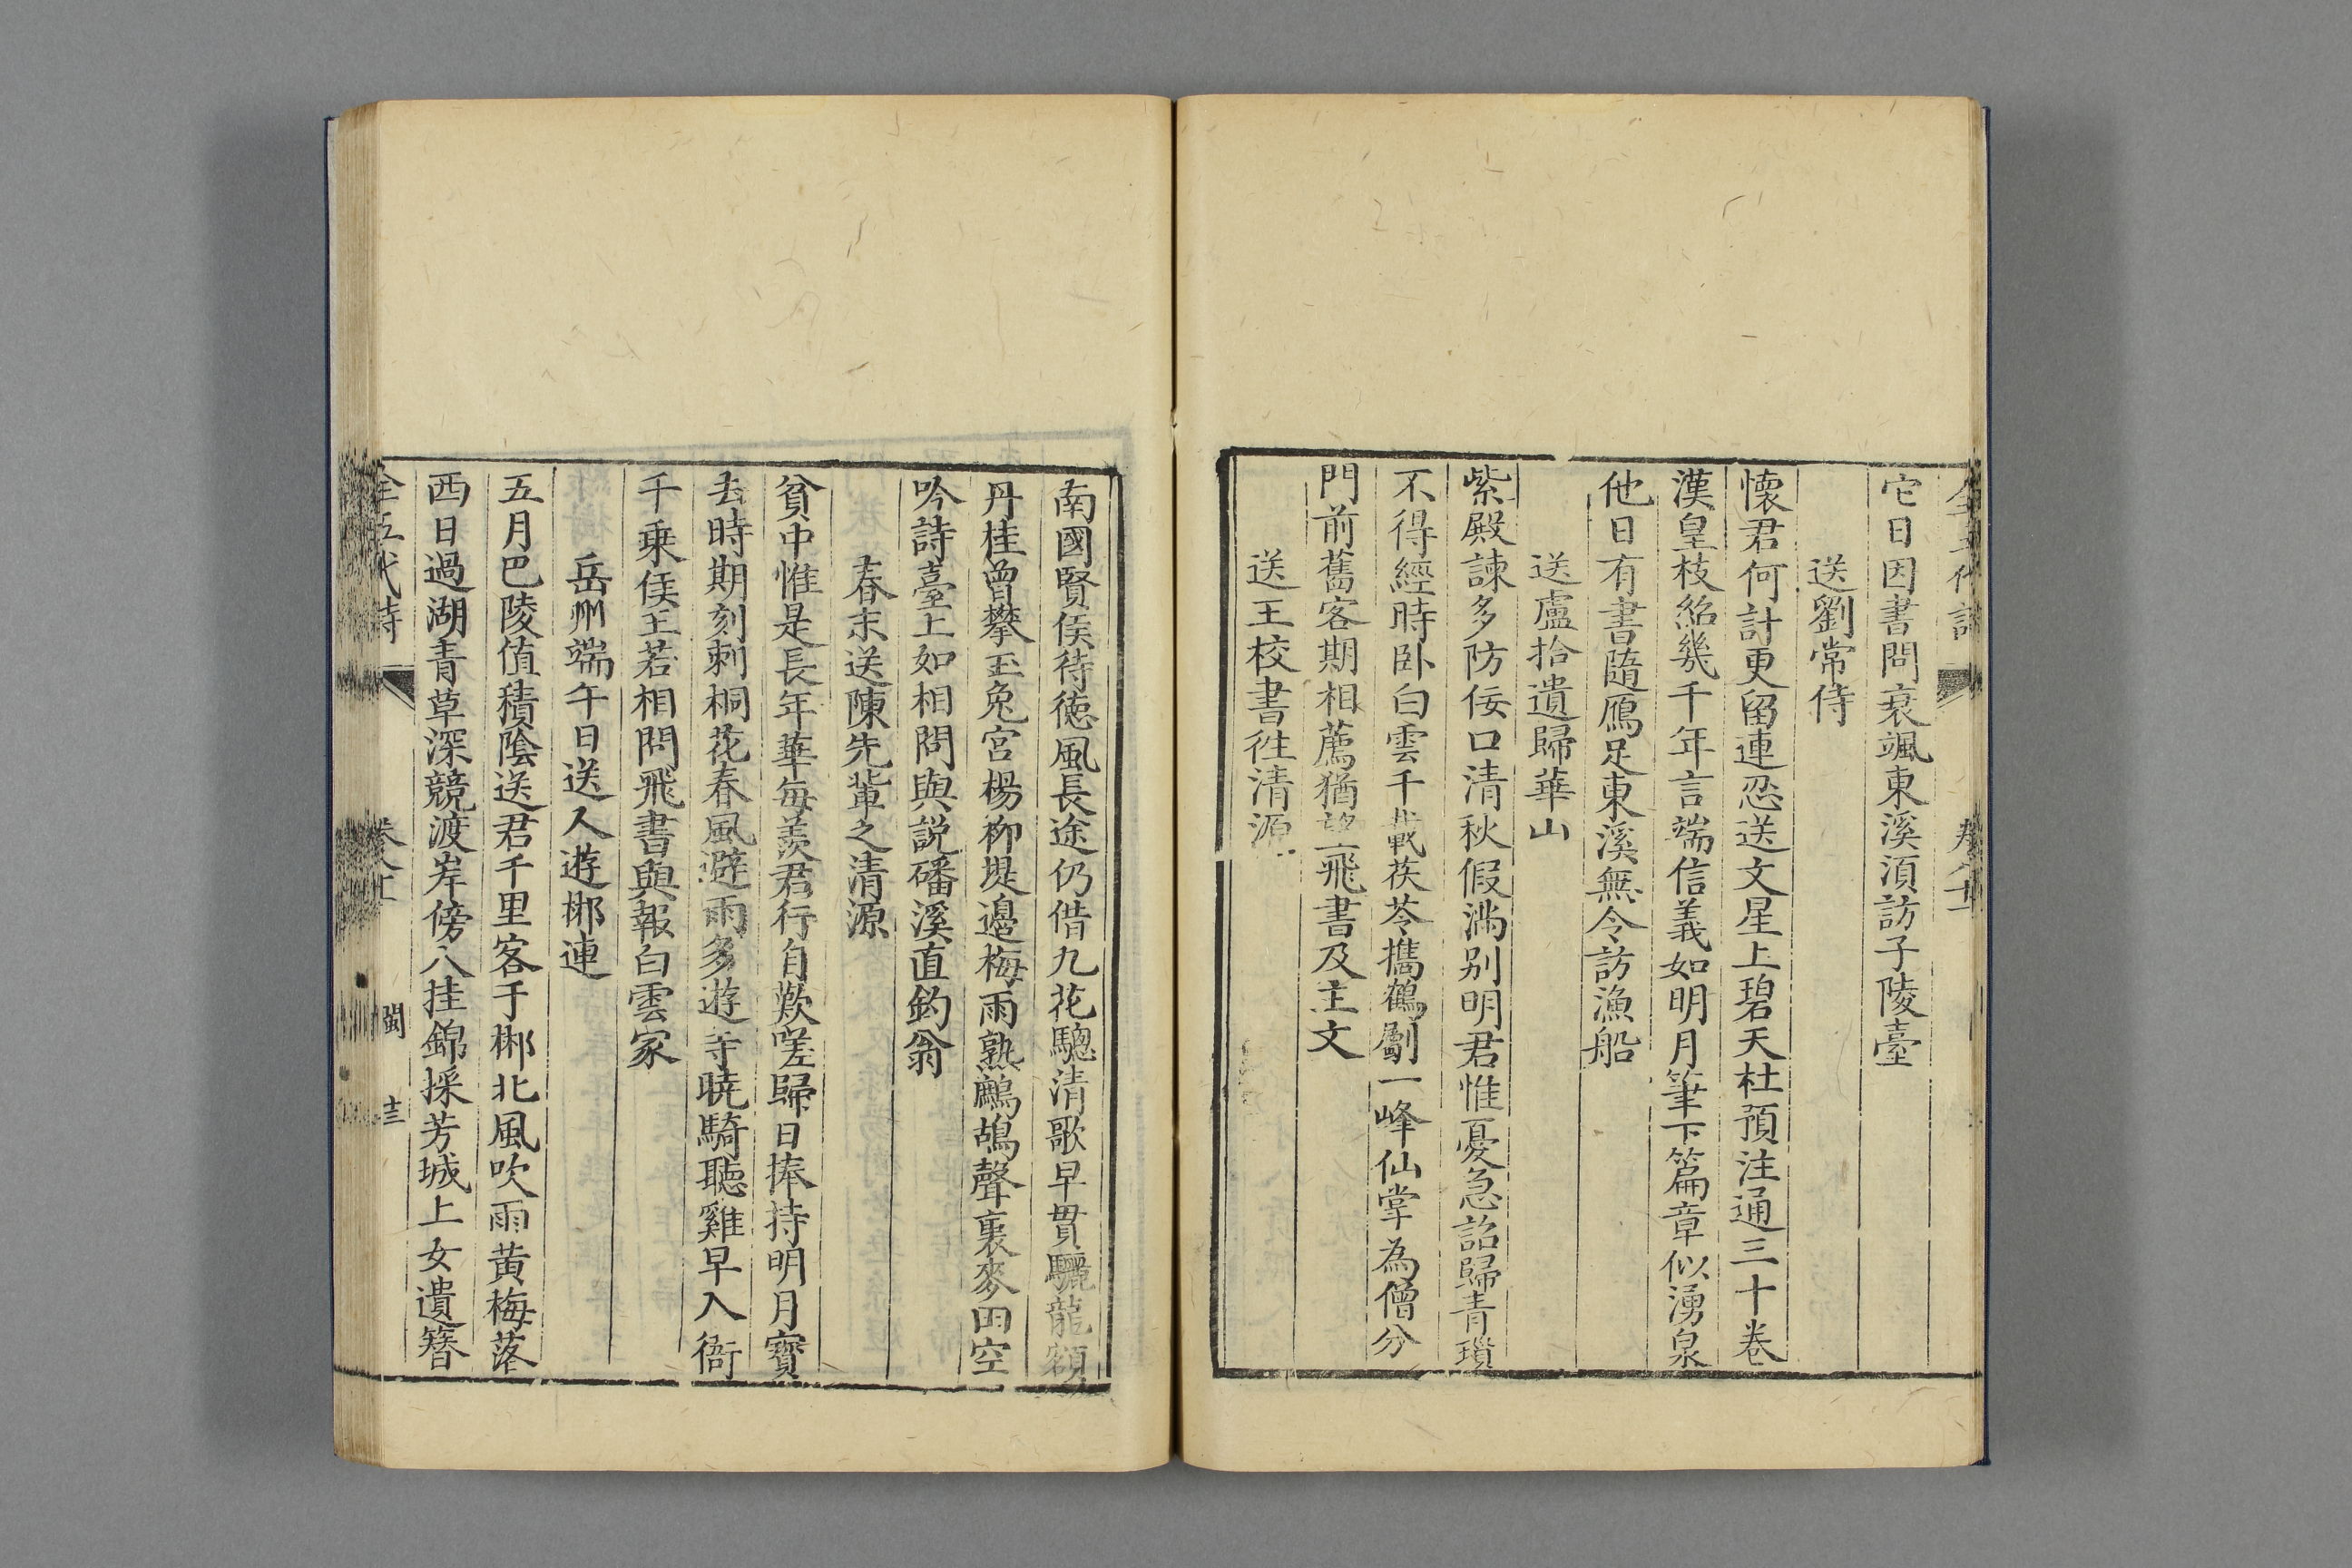 它日因書問衰颯東溪湏訪子陵臺
送劉常侍
懷君何計更留連忍送文星上碧天杜預注通三十卷
漢皇枝紹幾千年言端信義如明月筆下篇章似湧泉
他日有書隨鴈足東溪無令訪漁船
送盧拾遺歸華山
紫殿諫多防佞口清秋假滿别明君惟憂急詔歸青瑣
不得經時卧白雲千載茯苓攜鶴劚一峰仙掌為僧分
門前舊客期相薦猶望飛書及主文
送王校書徃清源
南國賢侯待德風長途仍借九花驄清歌早貫驪龍額
丹桂曾攀玉兔宮楊柳堤邉梅雨熟鷓鴣聲裏麥田空
吟詩臺上如相問與説磻溪直釣翁
春末送陳先軰之清源
貧中惟是長年華每羨君行自歎嗟歸日捧持明月寳
去時期刻刺桐花春風避雨多遊寺曉騎聽雞早入衙
千乗侯王若相問飛書與報白雲家
岳州端午日送人遊郴連
五月巴陵值積隂送君千里客于郴北風吹雨黄梅落
西日過湖青草深競渡岸傍八挂錦採芳城上女遺簪
全五代詩
閩